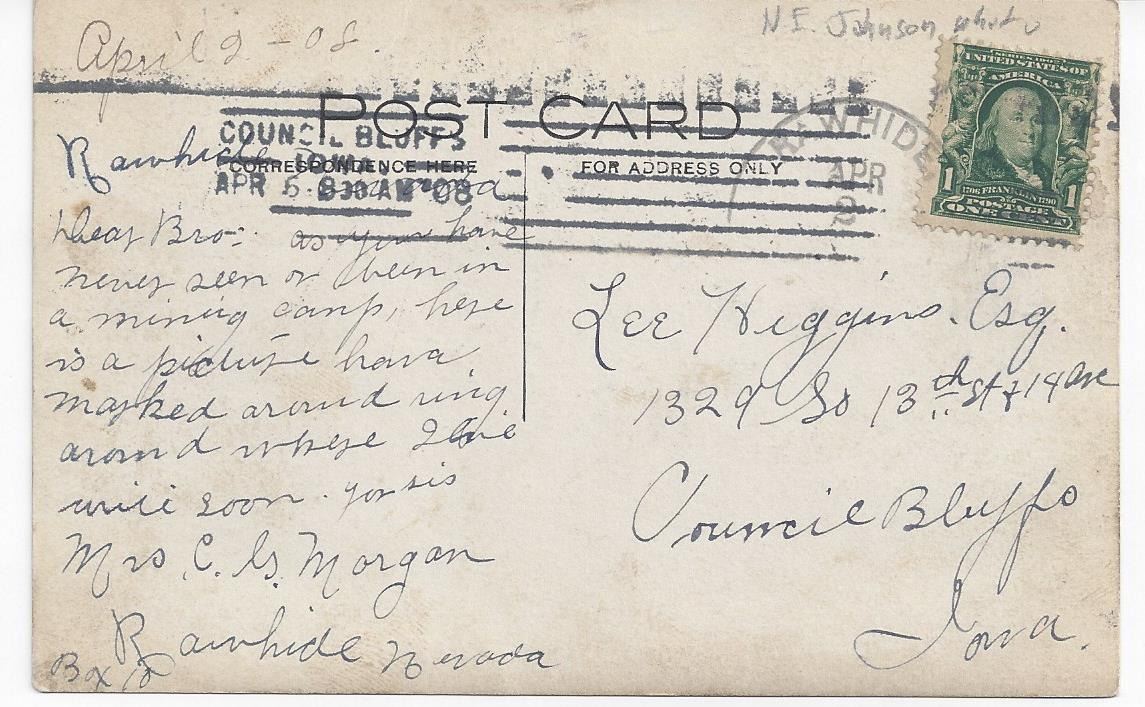 April 2 - 08.
N.E. Johnson photo
POST CARD
COUNCIL BLUFFS
IOWA
APR 5. 8 30 AM '08
CORRESPONDENCE HERE
FOR ADDRESS ONLY
RAWHIDE
APR
2
SERIES 1902
UNITED STATES OF
AMERICA
1706 FRANKLIN 1790
1 POSTAGE 1
ONE CENT
Rawhide
Dear Bro: as you have
never seen or been in
a mining camp, here
is a picture have
marked around ring
around where I live
write soon. your sis
Mrs. C. G. Morgan
Rawhide Nevada
Box
Lee Higgins. Esq.
1329 So 13th St & 14 ave
Council Bluffs
Iowa.